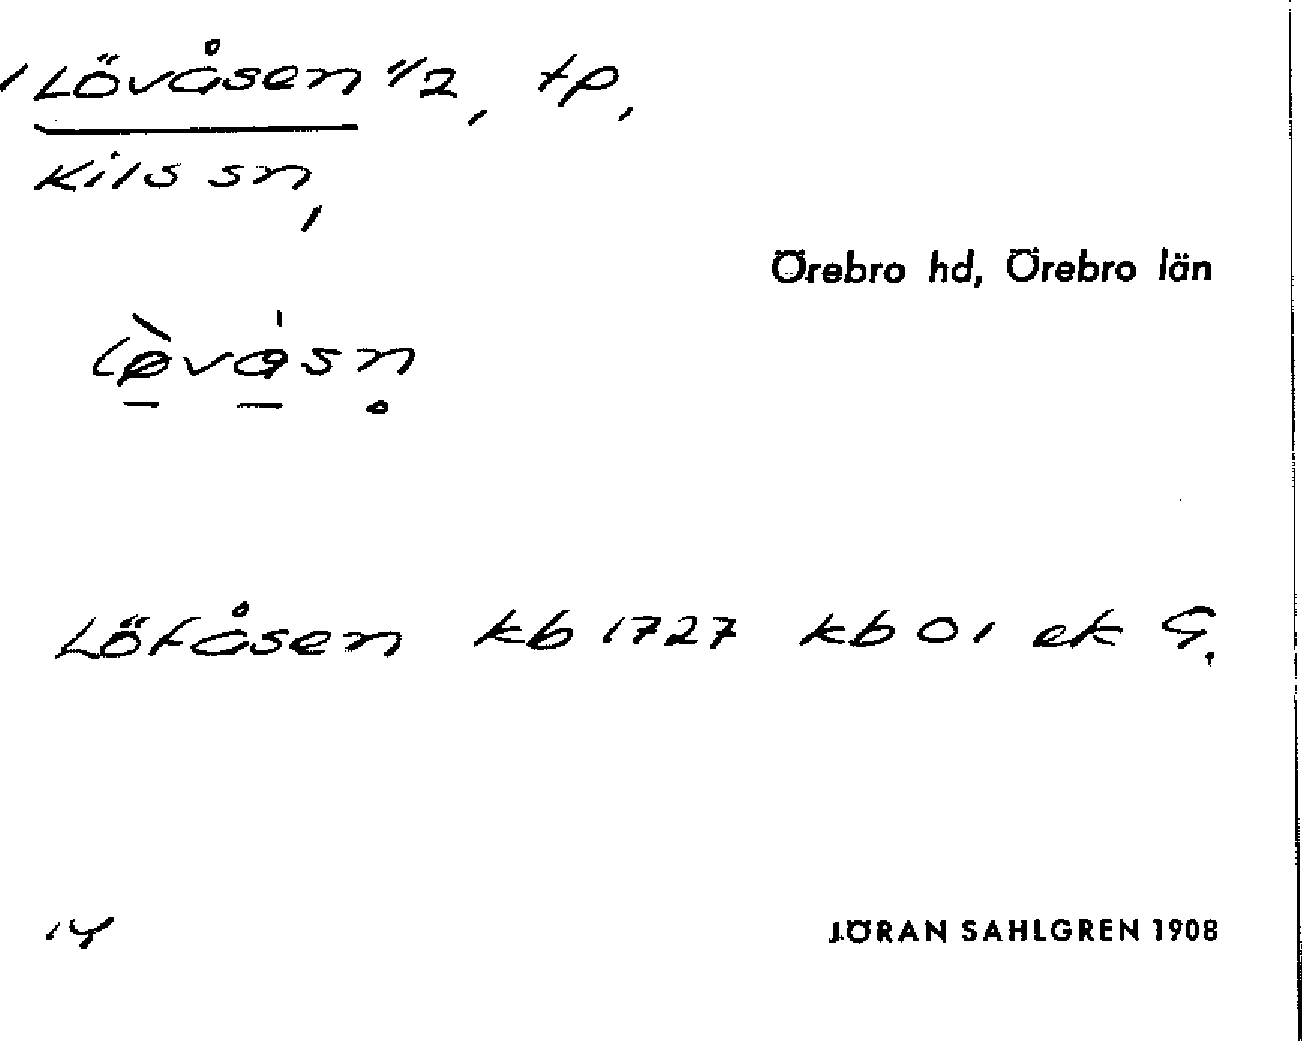 Lövåsen 1/2, tp.
Kils sn,
Örebro hd, Örebro län
Löfåsen kb 1727 kb 01 ek G.
14
JÖRAN SAHLGREN 1908